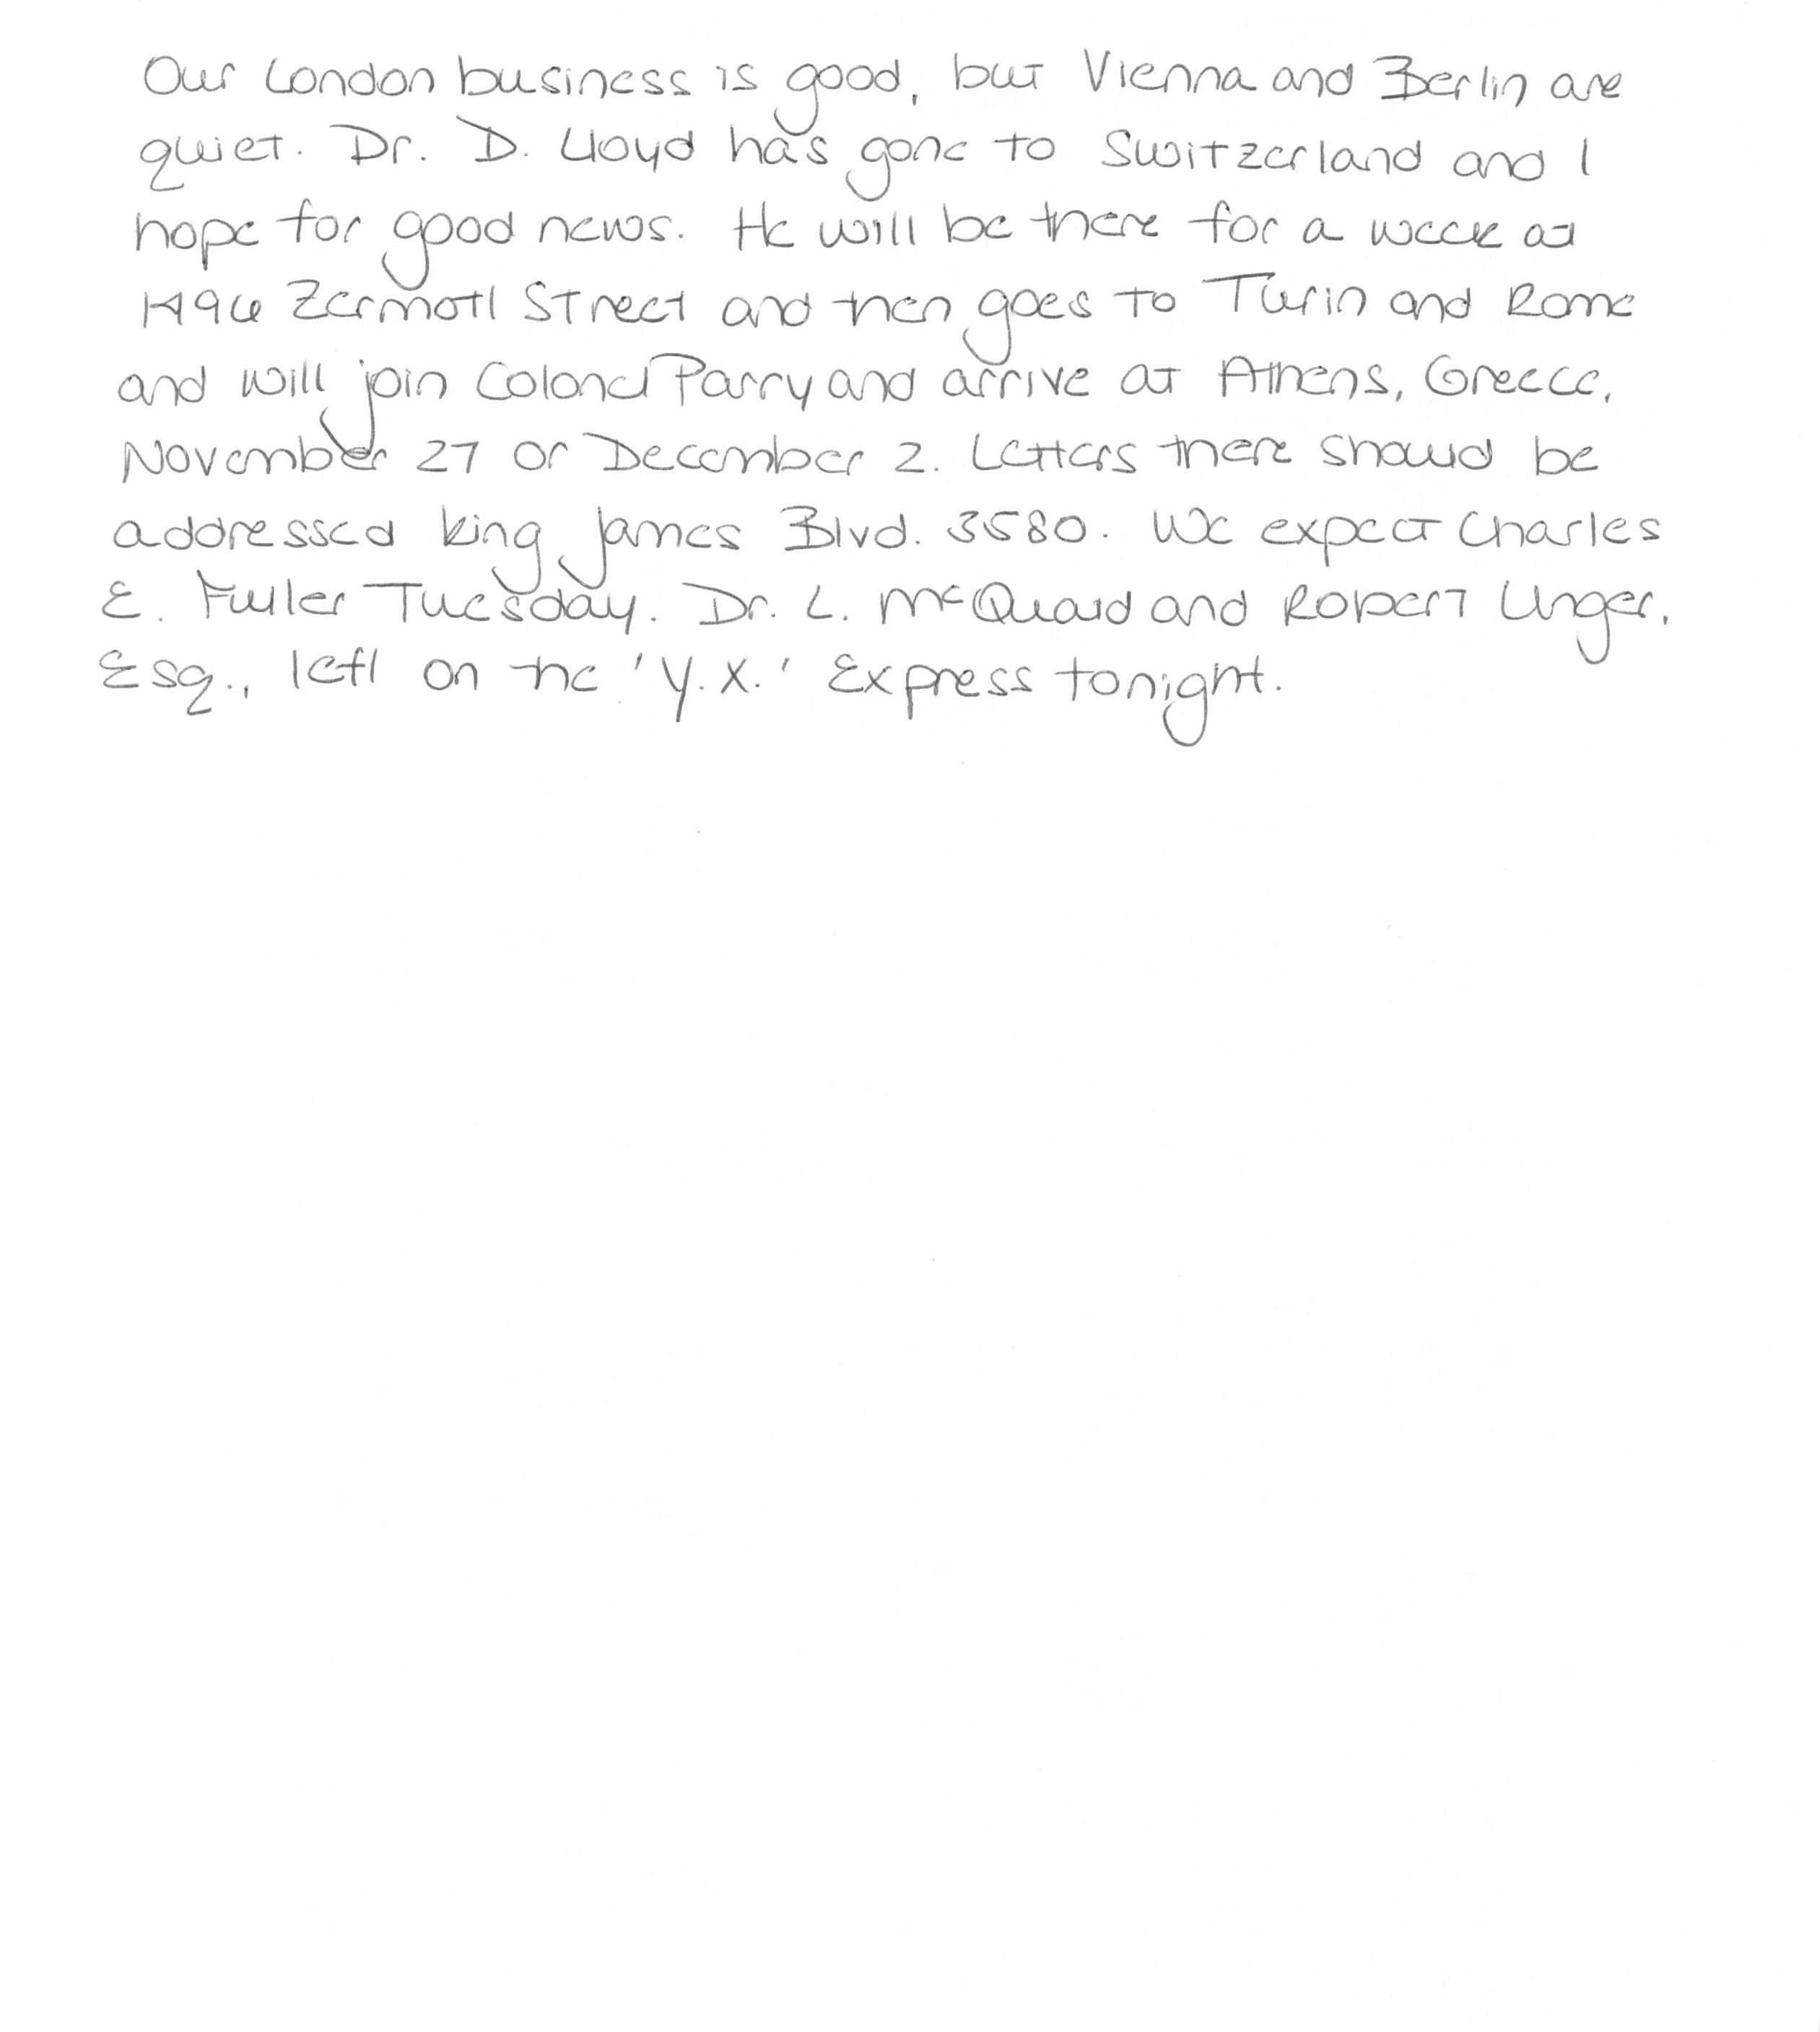 Our London business is good, but Vienna and Berlin are
quiet. Dr. D. Lloyd has gone to Switzerland and I
hope for good news. He will be there for a week at
1496 Zermott Street and then goes to Turin and Rome
and will join Colonel Parry and arrive at Athens, Greece,
November 27 or December 2. Letters there should be
addressed King James Blvd. 3580. We expect Charles
E. Fuller Tuesday. Dr. L. McQuaid and Robert Unger,
Esq., left on the 'Y.X.' Express tonight.